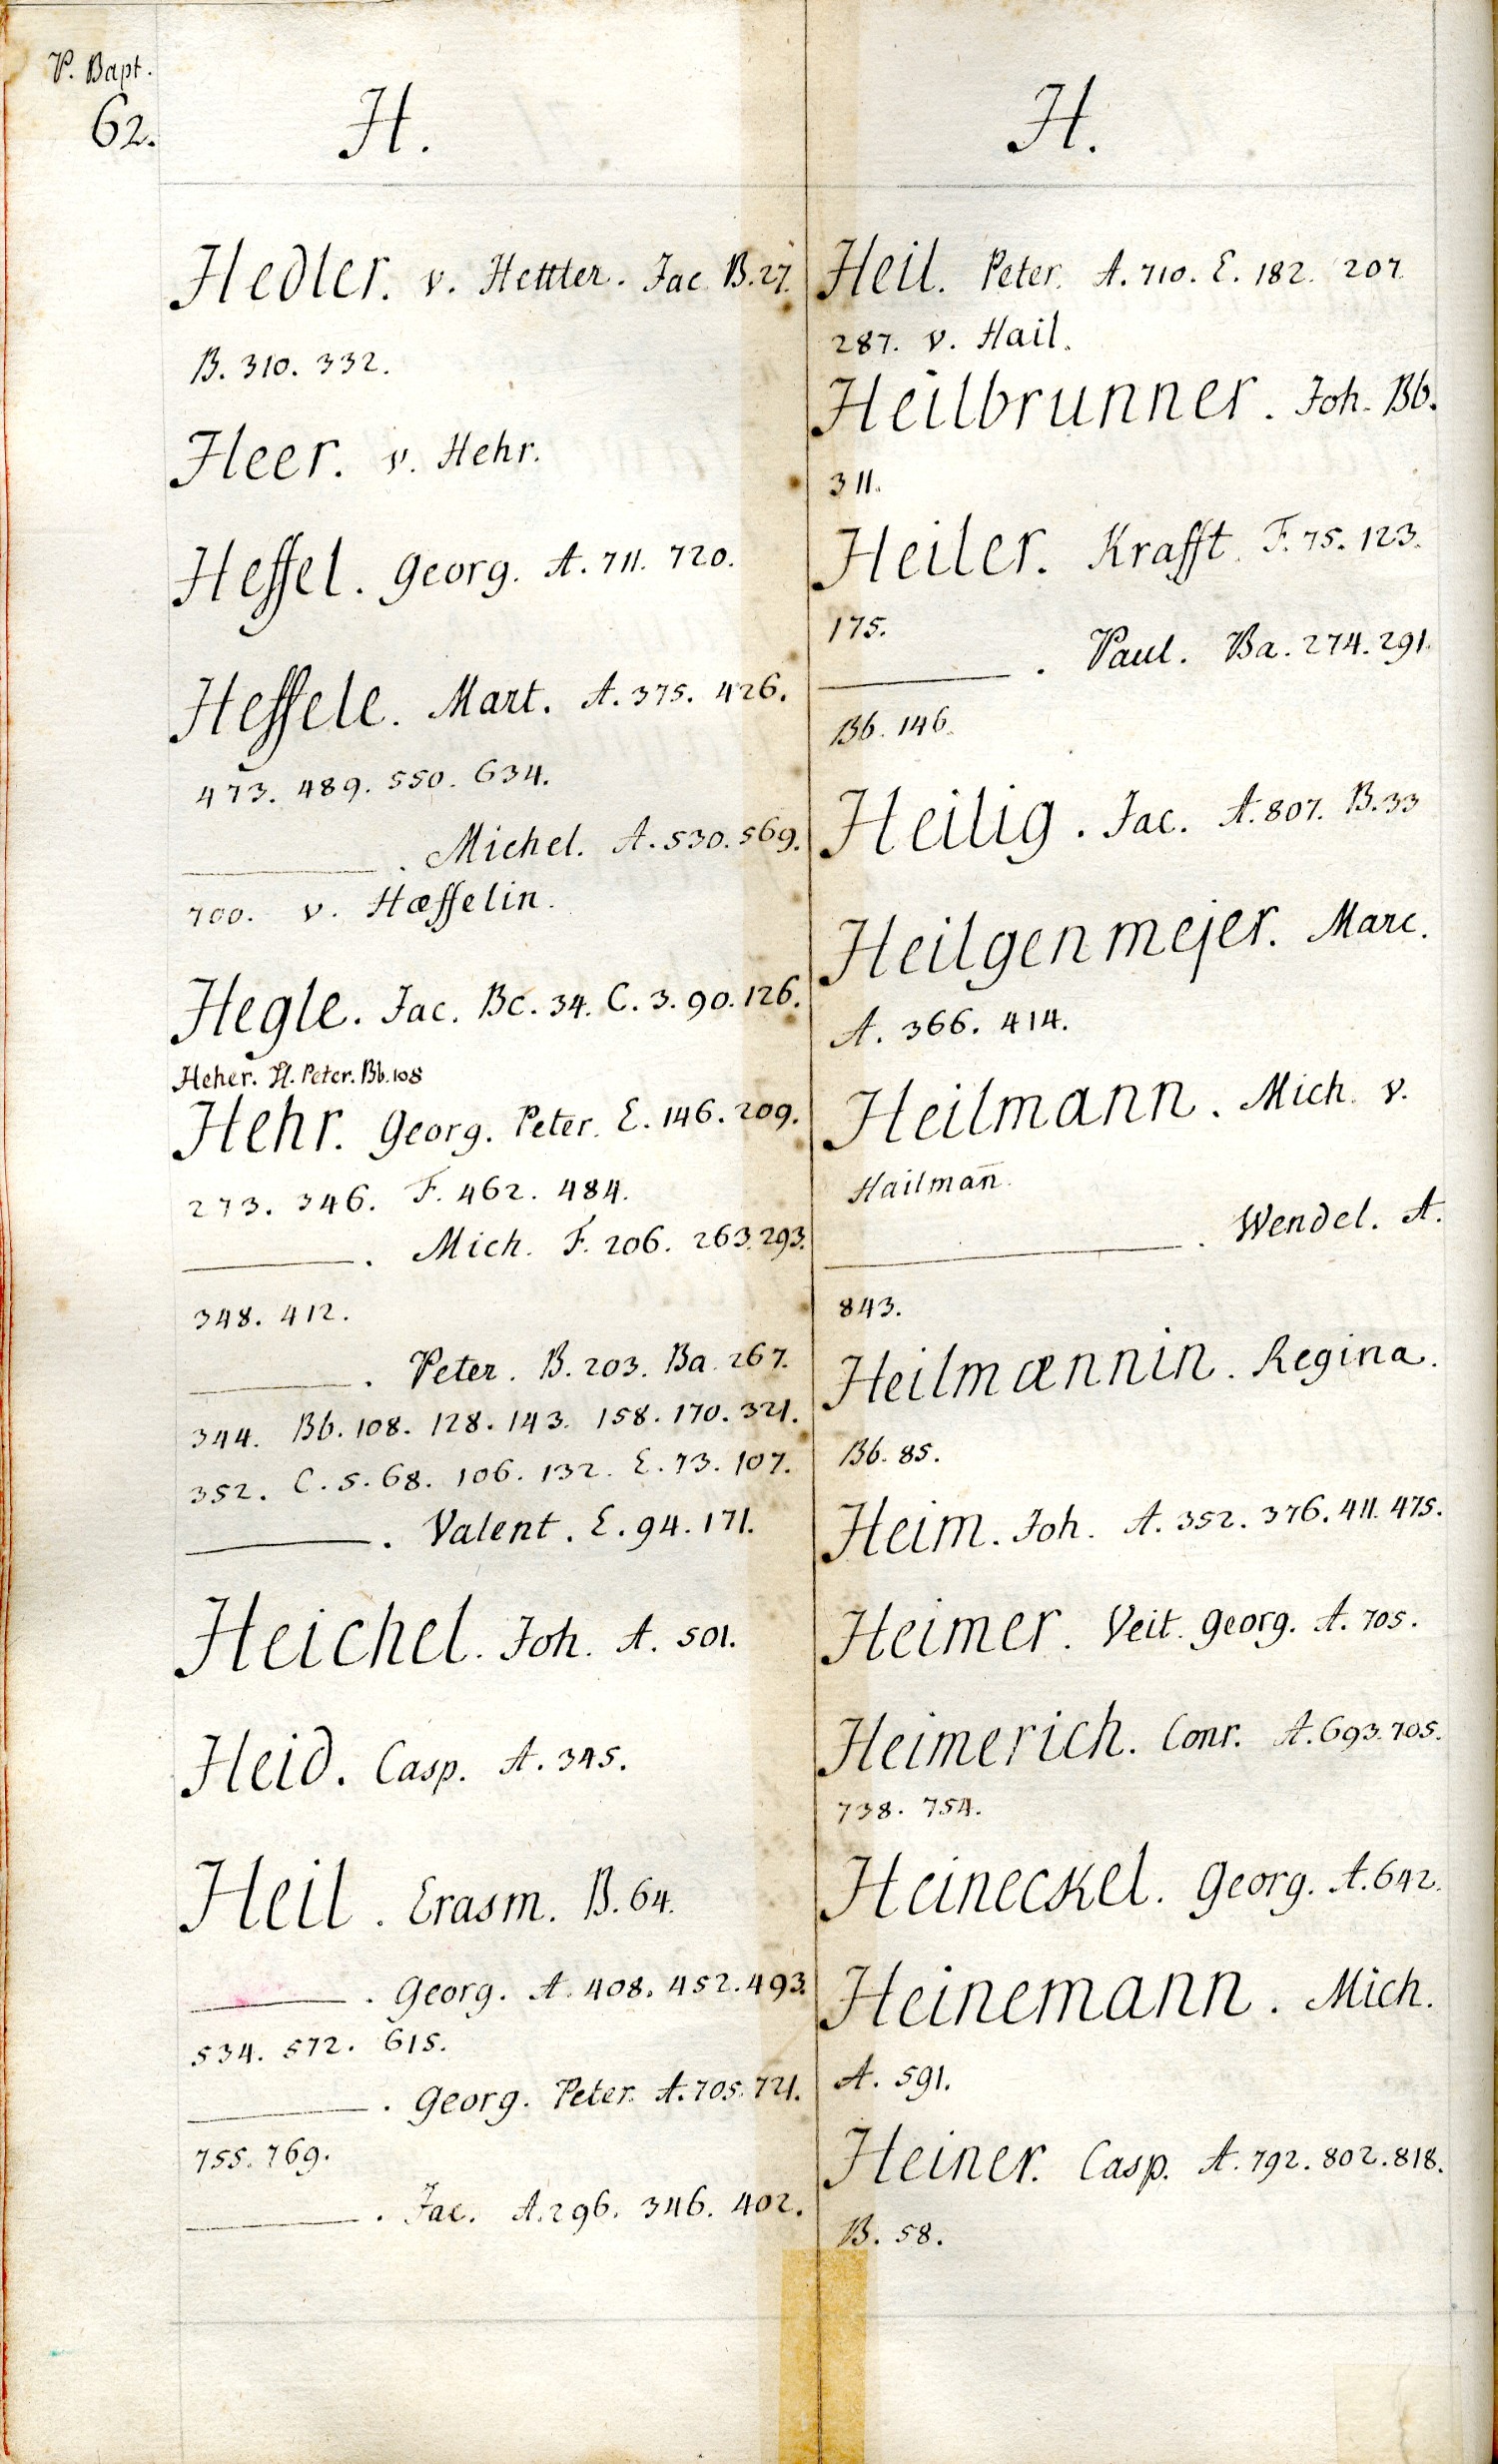 P. Bapt.
62.
H.
Hedler. v. Hettler. Jac. B. 27.
B. 310. 332.
Heer. v. Hehr.
Heffel. Georg. A. 711. 720.
Heffele. Mart. A. 375. 426.
473. 489. 550. 634.
———. Michel. A. 530. 569.
700. v. Hæffelin.
Hegle. Jac. Bc. 34. C. 3. 90. 126.
Heher. H. Peter. Bb. 108
Hehr. Georg. Peter. E. 146. 209.
273. 346. F. 462. 484.
———. Mich. F. 206. 263. 293.
348. 412.
———. Peter. B. 203. Ba. 267.
344. Bb. 108. 128. 143. 158. 170. 321.
352. C. 5. 68. 106. 132. E. 73. 107.
———. Valent. E. 94. 171.
Heichel. Joh. A. 501.
Heid. Casp. A. 345.
Heil. Erasm. B. 64.
———. Georg. A. 408. 452. 493.
534. 572. 615.
———. Georg. Peter. A. 705. 721.
755. 769.
———. Jac. A. 296. 346. 402.
H.
Heil. Peter. A. 710. E. 182. 207.
287. v. Hail.
Heilbrunner. Joh. Bb.
311.
Heiler. Krafft. F. 75. 123.
175.
———. Paul. Ba. 274. 291.
Bb. 146.
Heilig. Jac. A. 807. B. 33
Heilgenmejer. Marc.
A. 366. 414.
Heilmann. Mich. v.
Hailmañ.
———. Wendel. A.
843.
Heilmænnin. Regina.
Bb. 85.
Heim. Joh. A. 352. 376. 411. 475.
Heimer. Veit. Georg. A. 705.
Heimerich. Conr. A. 693. 705.
738. 754.
Heineckel. Georg. A. 642.
Heinemann. Mich.
A. 591.
Heiner. Casp. A. 792. 802. 818.
B. 58.